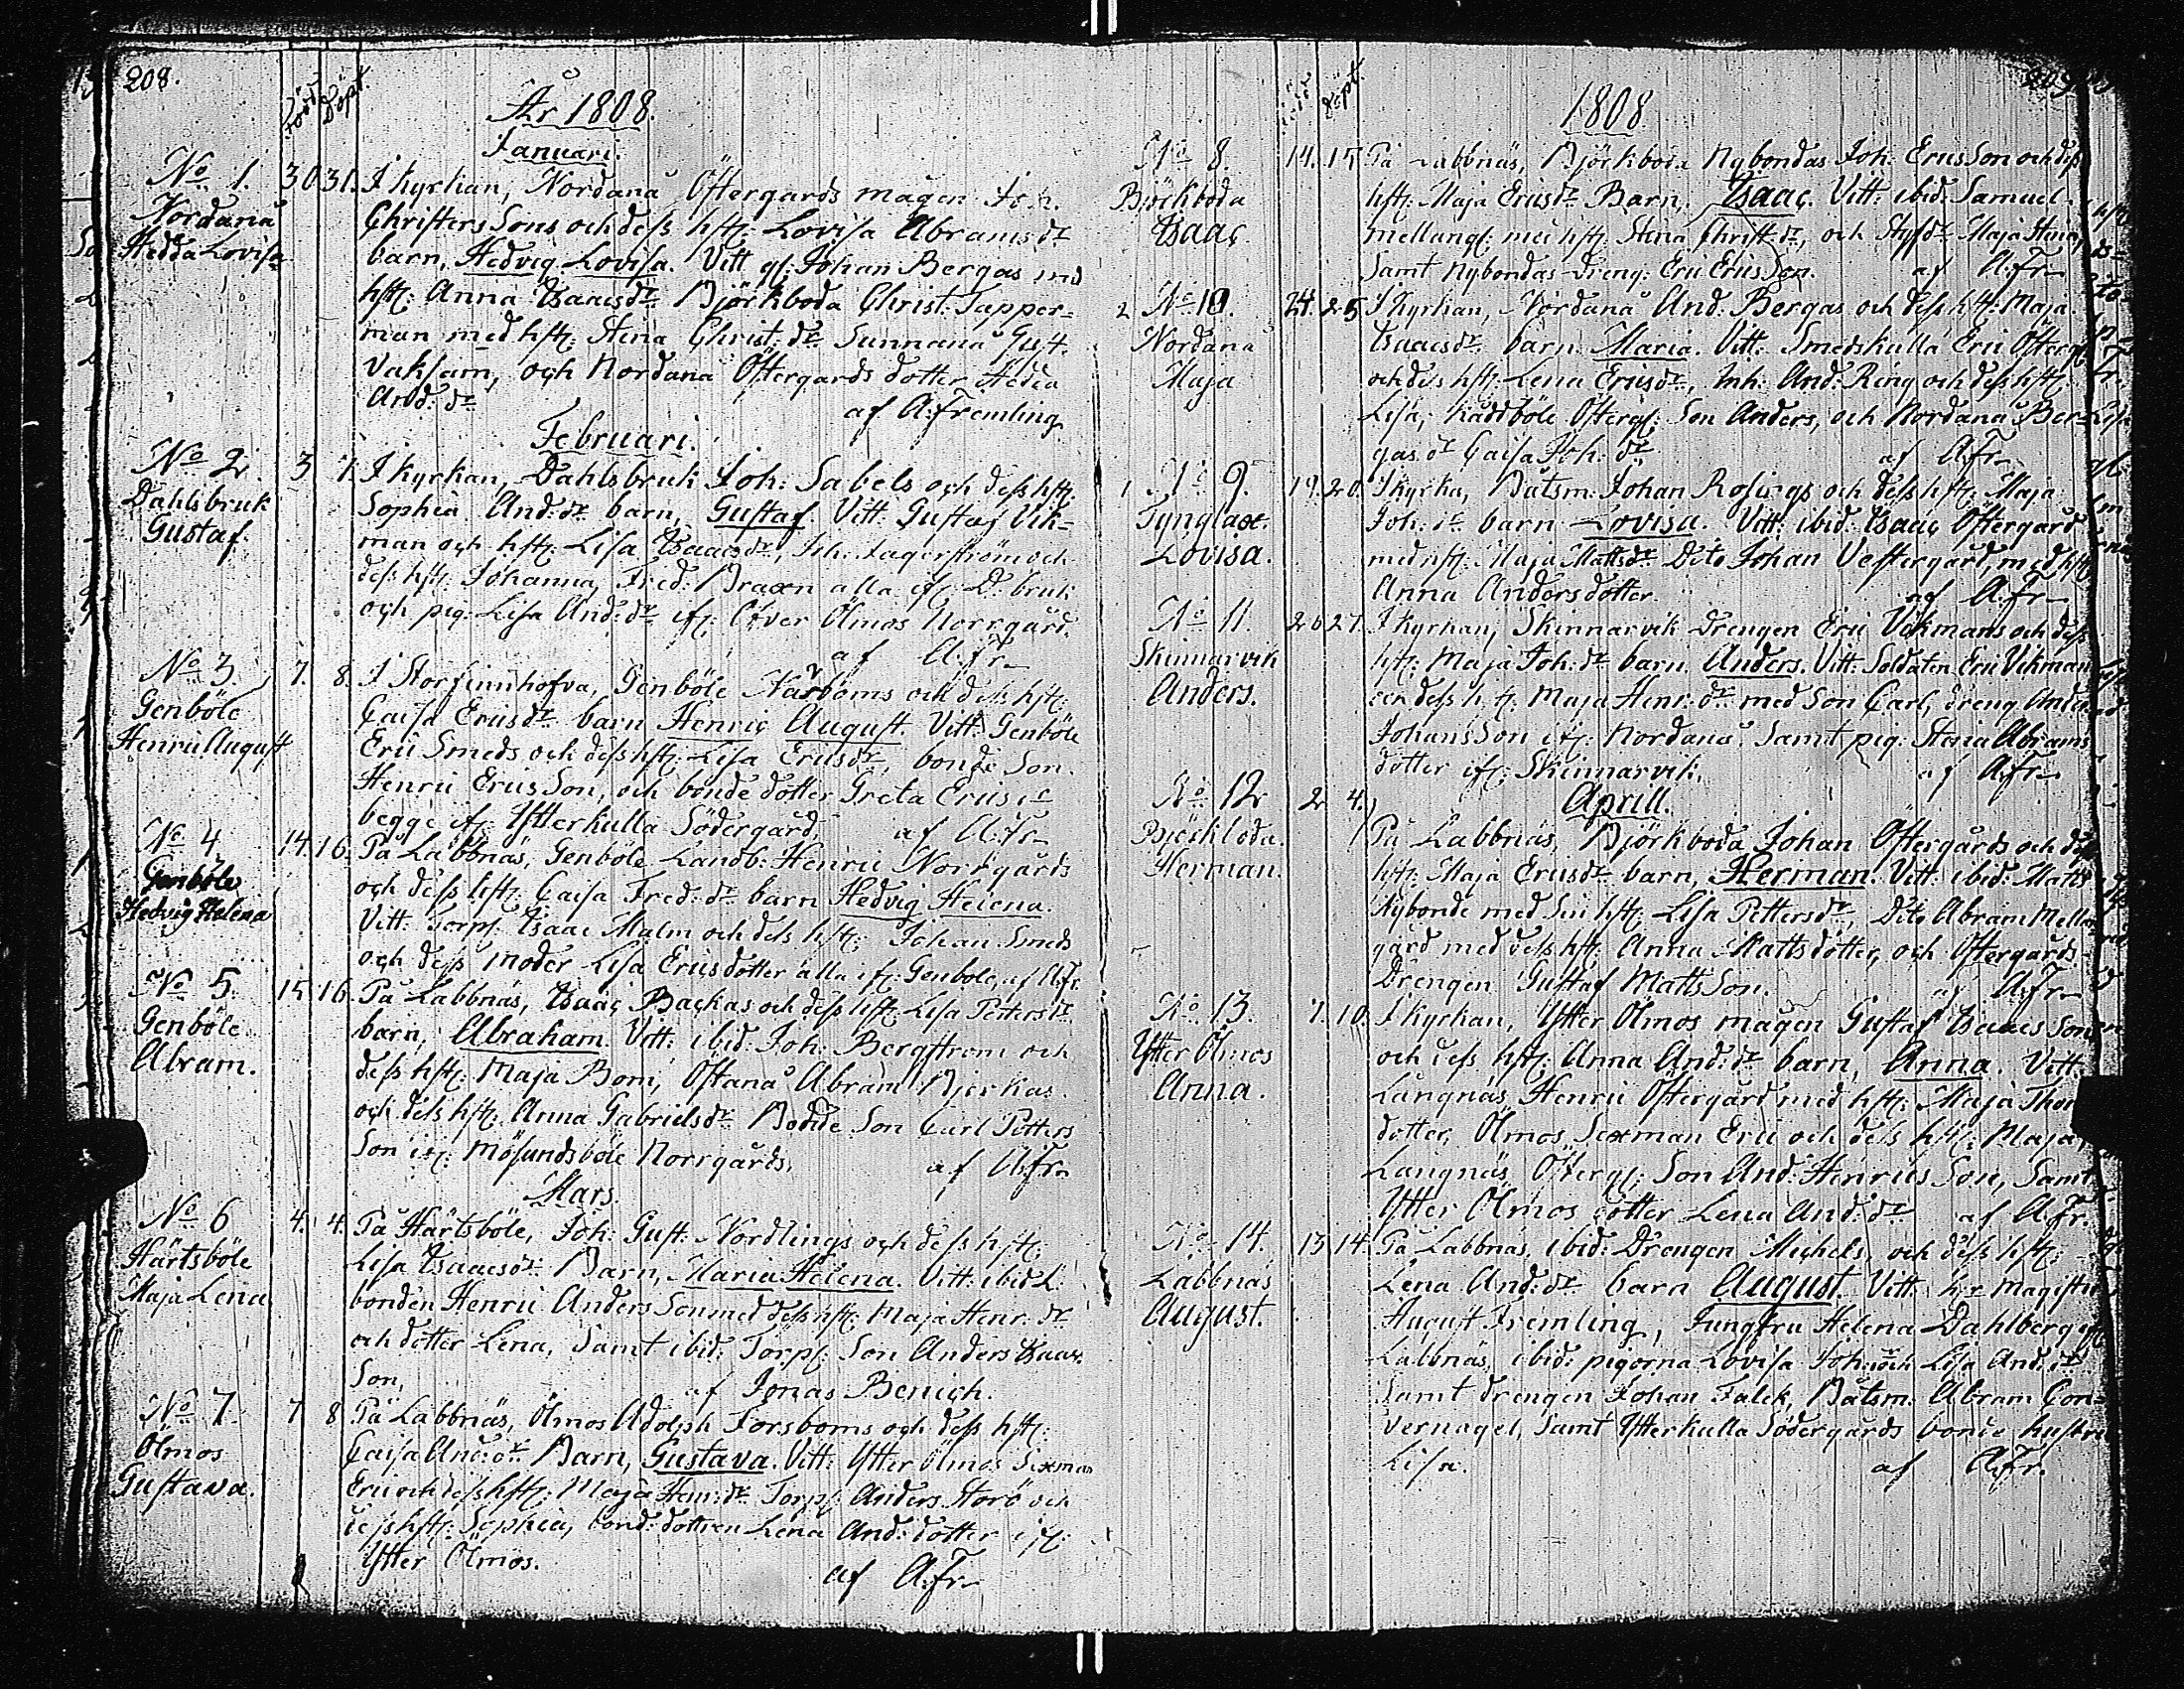 208.
Född
Döpt.
År 1808.
Januari.
No 1. 30 31. I kyrkan, Nordanå Östergårds mågen Joh.
Nordanå
Hedda Lovisa
Christers Sons och dess hst: Lovisa Abrams dr
barn, Hedvig Lovisa. Vitt gf: Johan Bergas med
hst: Anna Isaacs dr Björkboda Christ: Tapper=
man med hst: Stina Christ: dr Sunnanå Gust.
Vaksam, och Nordanå Östergårds dotter Hedda
And: dr
af A: Fremling
Februari.
No 2. 3 7. I kyrkan, Dahlsbruk Joh: Sabels och dess hst:
Dahlsbruk
Gustaf.
Sophia And: dr barn, Gustaf. Vitt: Gustaf Vik=
man och hst: Lisa Isaacs dr, Joh: Lagerström och
dess hst: Johanna, Fred: Braxn alla if: D: bruk
och pig: Lisa And: dr if: Öfver Ölmos Norrgård.
af A: Fr
No 3. 7. 8. I Storfinnhofva, Genböle Narboms och dess hst:
Genböle
Henric August
Caisa Erics dr barn Henric August. Vitt: Genböle
Eric Smeds och dess hst: Lisa Erics dr, bonde Son.
Henric Erics Son, och bonde dotter Greta Erics dr
begge if: Ytterkulla Södergård, af A: Fr
No 4 14. 16. På Labbnäs, Genböle Landb: Henric Norrgårds
Genböle
Hedvig Helena
och dess hst: Caisa Fred: dr barn Hedvig Helena.
Vitt: Torp: Isaac Malm och dess hst: Johan Smeds
och dess moder Lisa Erics dotter alla if: Genböle, af A: Fr.
No 5. 15 16 På Labbnäs, Isaac Backas och dess hst: Lisa Petters dr
Genböle
Abram.
barn, Abraham. Vitt: ibid: Joh: Bergström och
dess hst: Maja Bom, Östanå Abram Bjerkas
och dess hst: Anna Gabriels dr Bonde Son Carl Petters
Son if: Mösundsböle Norrgårds. af A: Fr
Mars.
No 6 4. 4. På Hårtsböle, Joh: Gust: Nordlings och dess hst:
Hårtsböle
Maja Lena
Lisa Isaacs dr Barn, Maria Helena. Vitt: ibid L:
bonden Henric Anders Son med dess hst: Maja Henr: dr
och dotter Lena, Samt ibid: Torp: Son Anders Isaacs
Son, af Jonas Benich.
No 7 7 8 På Labbnäs, Ölmos Adolph Forsboms och dess hst:
Ölmos
Gustava.
Caisa And: dr Barn, Gustava. Vitt: Ytter Ölmos Sexman
Eric och dess hst: Maja Henr: dr Torp: Anders Storö och
dess hst: Sophia, bond: dottren Lena And: dotter if:
Ytter Ölmos. af A: Fr
209
Född
Döpt.
1808
No 8. 14. 15 På Labbnäs, Björkboda Nybondas Joh: Erics Son och dess
Björkboda
Isaac
hst: Maja Erics dr Barn, Isaac. Vitt: ibid: Samuel
mellang: med hst: Stina Christ: dr, och Styfdr Maja Stina,
Samt Nybondas Dreng: Eric Erics Son. af A: Fr
2 No 10. 24. 25 I kyrkan, Nordanå And: Bergas och dess hst: Maja
Nordanå
Maja
Isaacs dr barn Maria. Vitt: Smedskulla Eric Österg:
och dess hst: Lena Erics dr, Inh: And: Ring och dess hst:
Lisa, Kaddböle Österg: Son Anders, och Nordanå Ber=
gas dr Caisa Joh: dr af A: Fr
1 No 9. 19. 20. I kyrka, Båtsm: Johan Rosings och dess hst: Maja
Tynglax.
Lovisa.
Joh: dr barn Lovisa. Vitt: ibid: Isaac Östergård
med hst: Maja Matts dr Dito Johan Vestergård, med hst:
Anna Anders dotter. af A: Fr
No 11. 26 27. I kyrkan, Skinnarvik Drengen Eric Vikmans och dess
Skinnarvik
Anders.
hst: Maja Joh: dr barn Anders. Vitt: Soldaten Eric Vikman
och dess hst: Maja Henr: dr med Son Carl, dreng Anders
Johans Son if: Nordanå, Samt pig: Stina Abrams
dotter if: Skinnarvik. af A: Fr
Aprill.
No 12 2 4. På Labbnäs, Björkboda Johan Östergårds och dess
Björkboda.
Herman.
hst: Maja Erics dr barn, Herman. Vitt: ibid: Matts
Nybonde med Sin hst: Lisa Petters dr, Dito Abram Mellan
gård med dess hst: Anna Matts dotter, och Östergårds
Drengen Gustaf Matts Son. af A: Fr
No 13. 7. 10. I kyrkan, Ytter Ölmos mågen Gustaf Isaacs Son
Ytter Ölmos
Anna.
och dess hst: Anna And: dr barn, Anna. Vitt:
Långnäs Henric Östergård med hst: Maja Thom
dotter, Ölmos Sexman Eric och dess hst: Maja,
Långnäs Österg: Son And: Henrics Son, Samt
Ytter Ölmos dotter Lena And: dr af A: Fr.
No 14. 13 14. På Labbnäs, ibid: Drengen Michels, och dess hst:
Labbnäs
August.
Lena And: dr barn August. Vitt: hr Magister
August Fremling, Jungfru Helena Dahlberg if:
Labbnäs, ibid: pigorna Lovisa Joh: dr och Lisa And: dr
Samt drengen Johan Falck, Båtsm: Abram Con=
vernagel, Samt Ytterkulla Södergårds bonde hustru
Lisa. af A: Fr.